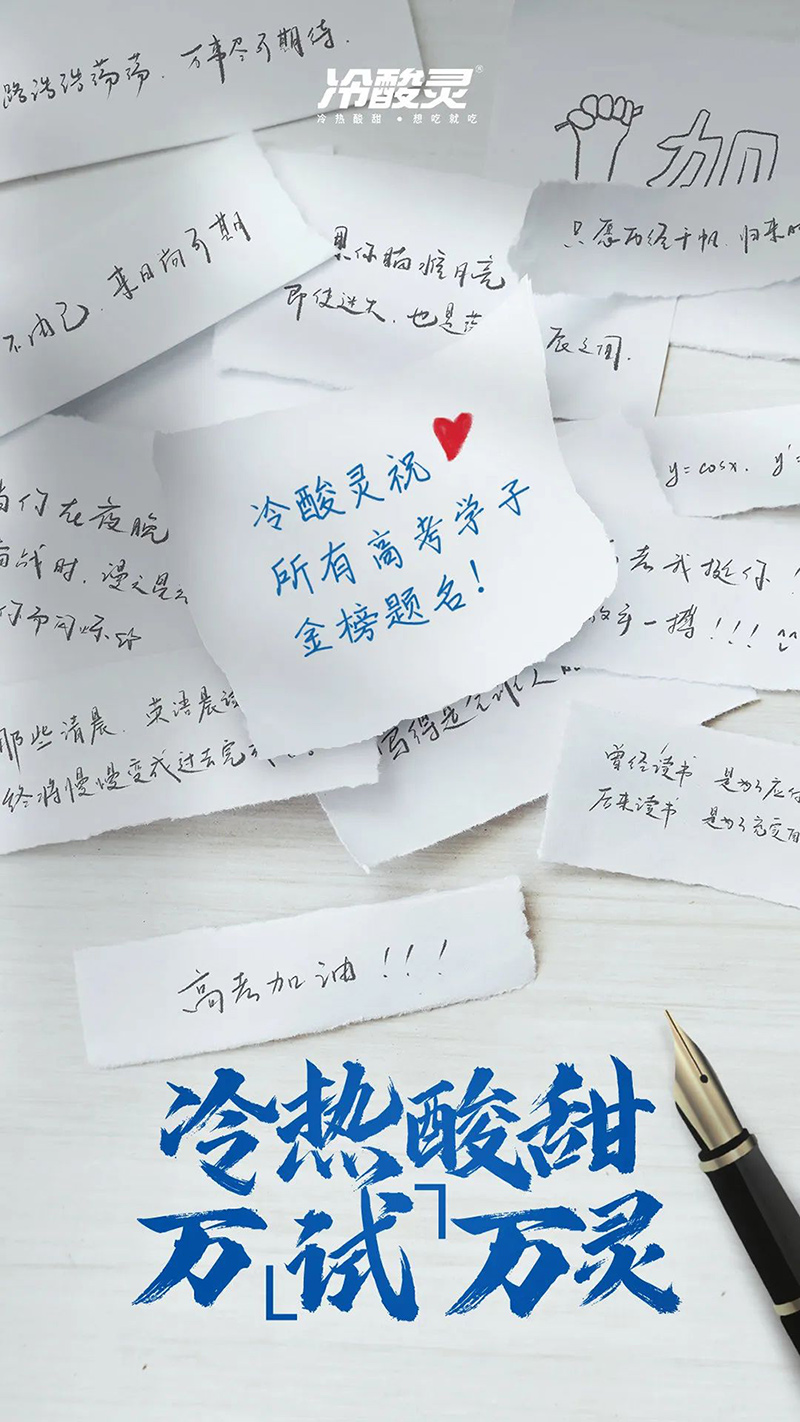 路浩浩荡荡，万事尽可期待.
冷酸灵®
冷热酸甜•想吃就吃
加
只愿历经千帆，归来
不由己，来日尚可期
瞄准月亮
即使迷失，也是
辰之间.
冷酸灵祝
所有高考学子
金榜题名！
y=cosx. y'=
你在夜晚
奋战时，漫天星
考我挺你！
一搏！！！
那些清晨，英语晨读
终将慢慢变成过去完
写得
曾经读书 是为了应
后来读书 是为了充实
高考加油！！！
冷热酸甜
万「试」万灵